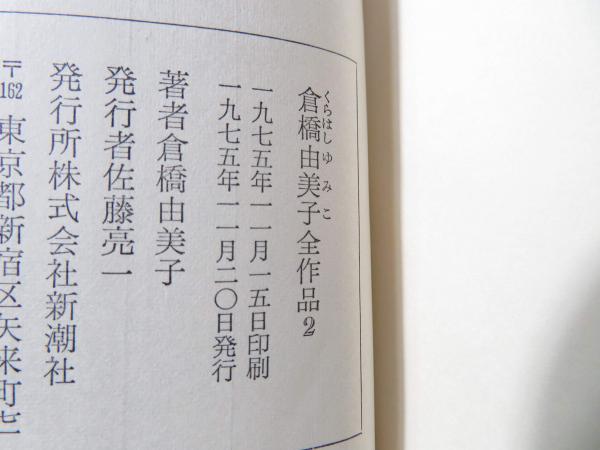 くらはしゆみこ
倉橋由美子全作品2
一九七五年一一月一五日印刷
一九七五年一一月二〇日発行
著者倉橋由美子
発行者佐藤亮一
発行所株式会社新潮社
〒162 東京都新宿区矢来町七一